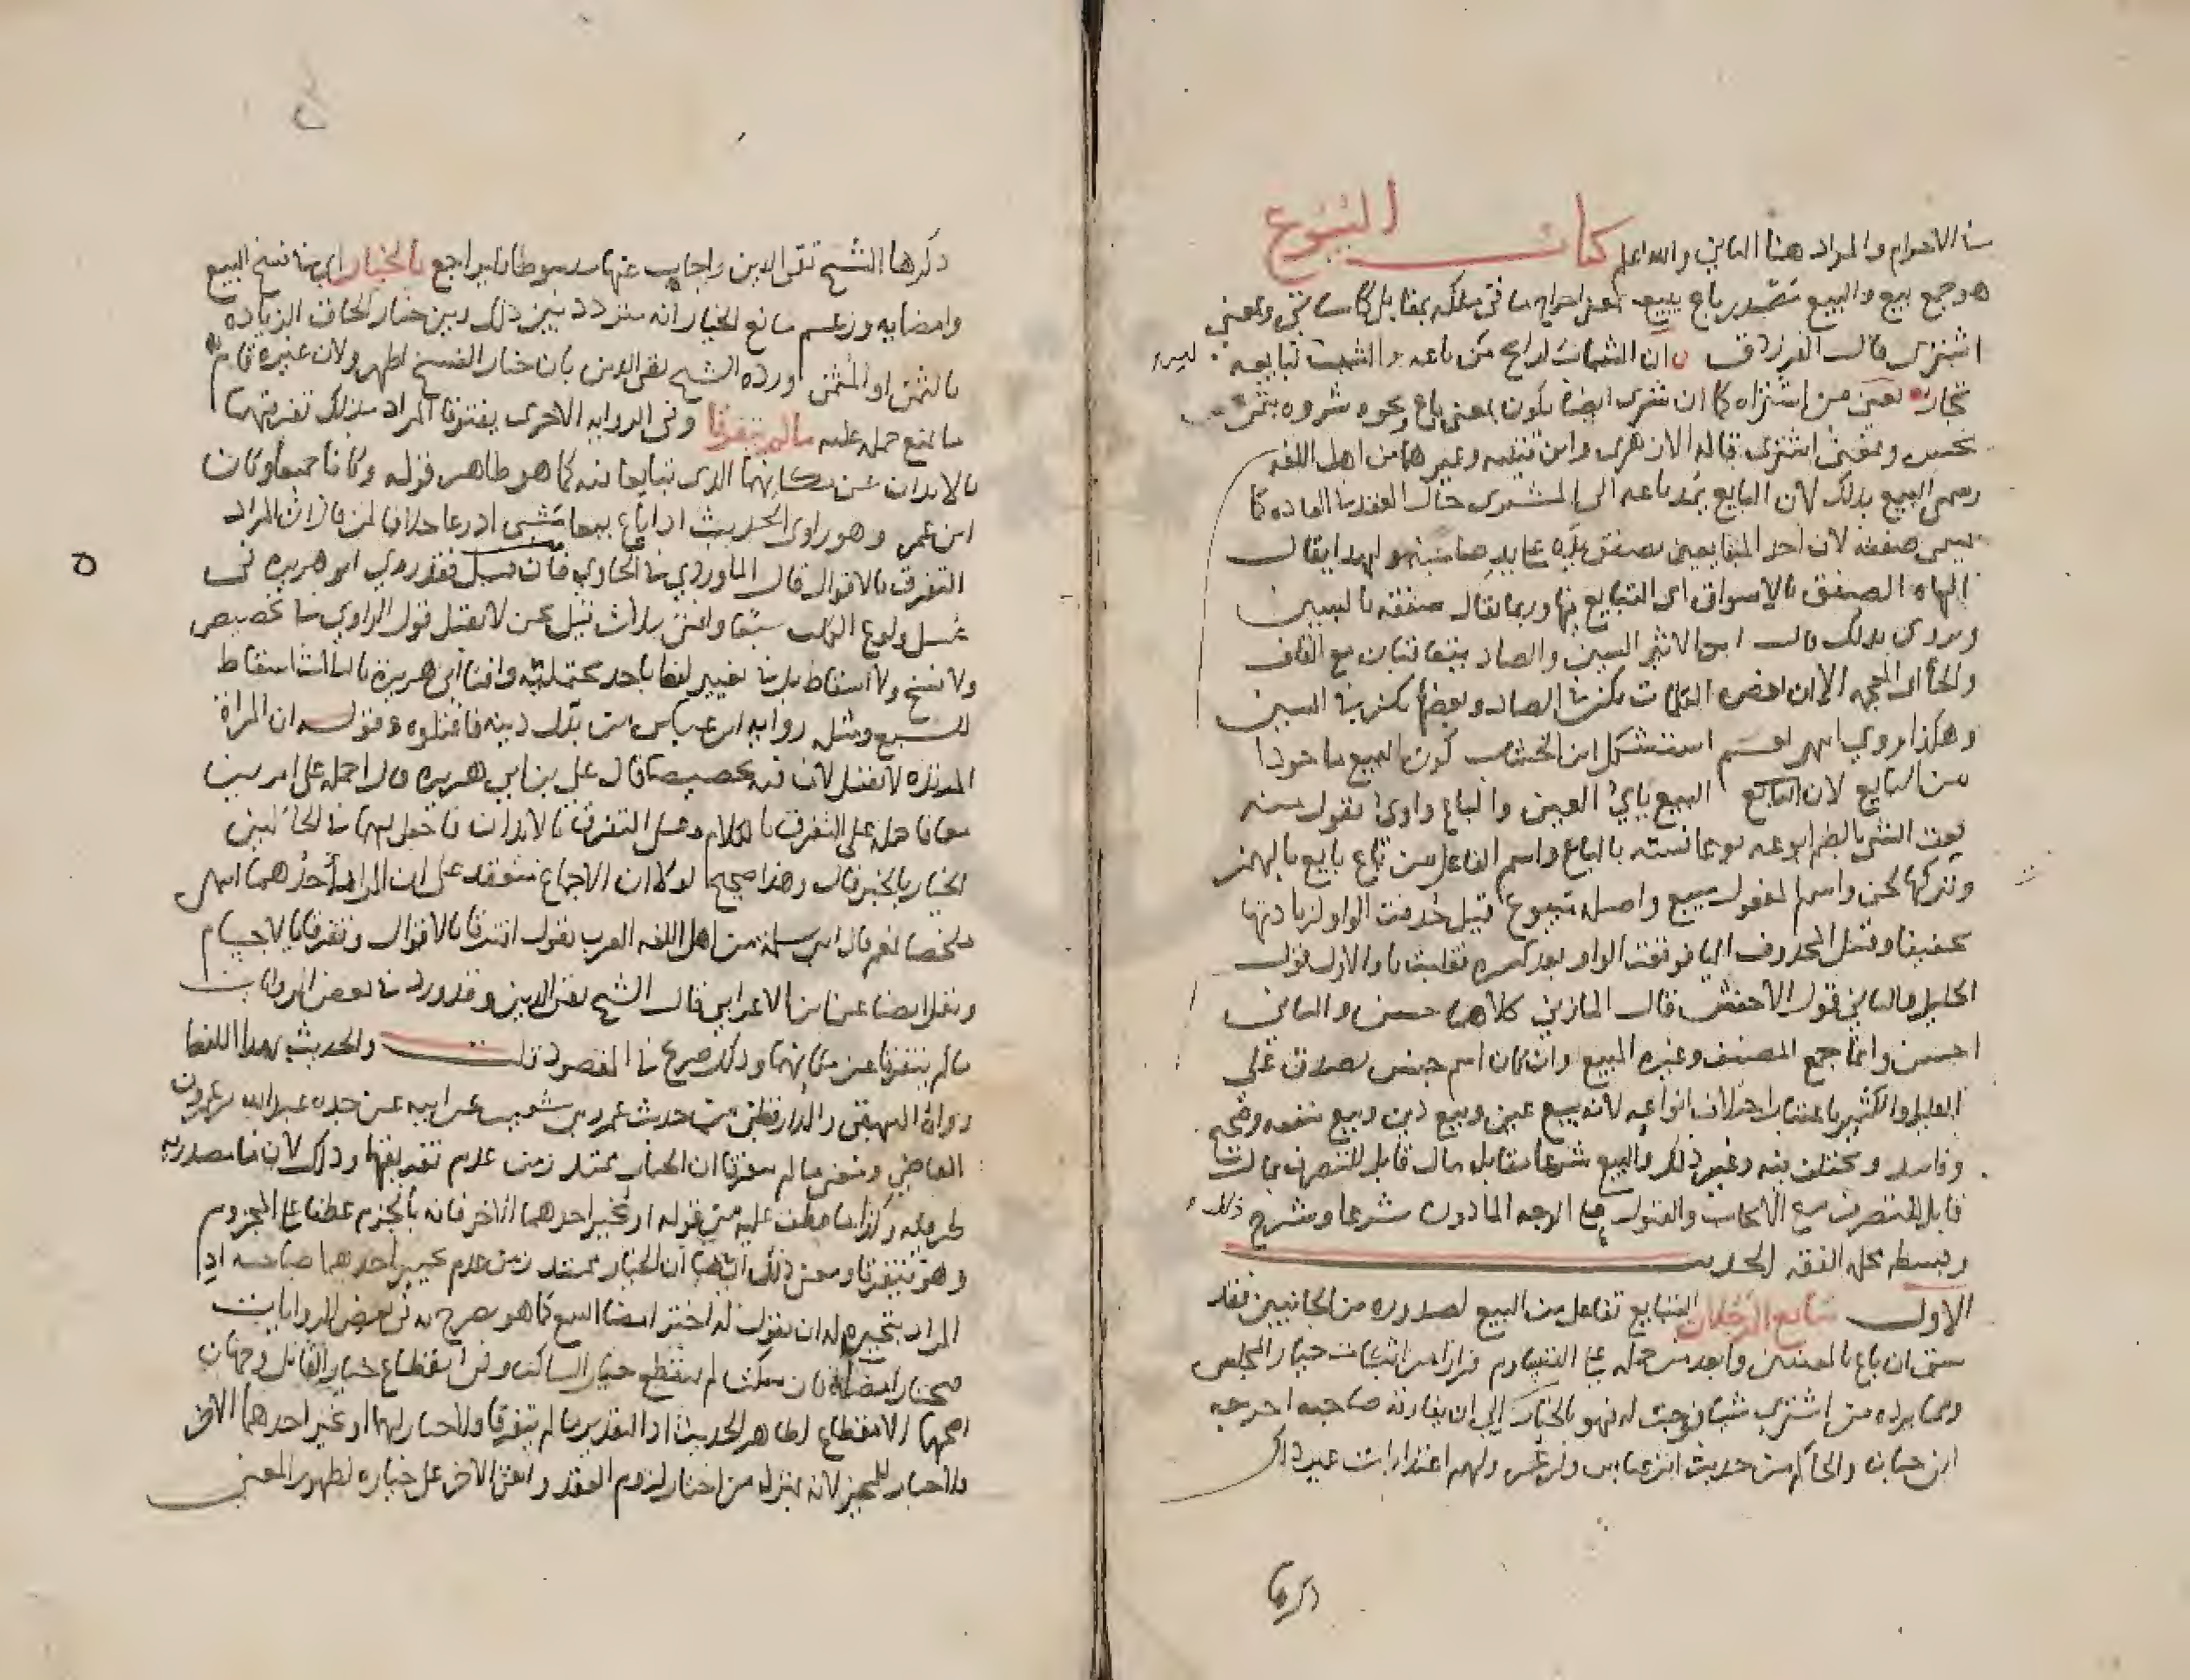 من الاحرام والمراد هنا الثاني والله اعلم كتاب البيوع
هو جمع بيع والبيع مصدر باع يبيع بمعنى اخراج ما في ملكه بمقابل كما سياتي وبمعنى
اشترى قال الفرزدق ان الشباب لرابح من باعه والشيب لبايعه ليس
تجار يعني من اشتراه كما ان شرى ايضا يكون بمعنى باع نحو وشروه بثمن
بخس وبمعنى اشترى قاله الازهري وابن قتيبه وغيرهما من اهل اللغه
وسمي البيع بذلك لان البايع يمد باعه الى المشتري حال العقد في العاده كما
يسمى صفقه لان احد المتبايعين يصفق يده على يد صاحبه ولهذا يقال
الهاه الصفق بالاسواق اي التبايع فيها وربما يقال سفقه بالسين
ويروى بذلك قال ابن الاثير السين والصاد يتعاقبان مع القاف
والخا اي المعجمه الا ان بعض الكلمات يكثر في الصاد وبعضها يكثر في السين
وهكذا يروى انتهى نعم استشكل ابن الخشاب كون البيع ماخوذا
من الباع لان البيع يايي العين والباع واوي تقول منه
بعت الشي بالضم ابوعه بوعا اذا قسته بالباع واسم الفاعل من باع بايع بالهمز
وتركها لحن واسم المفعول مبيع واصله مبيوع قيل حذفت الواو لزيادتها
تخفيفا وقيل المحذوف اليا فوقعت الواو بعد كسره فقلبت يا والاول قول
الخليل والثاني قول الاخفش قال المازني كلاهما حسن والثاني
احسن وانما جمع المصنف وغيره البيع وان كان اسم جنس يصدق على
القليل والكثير باعتبار اختلاف انواعه لانه بيع عين وبيع دين وبيع منفعه وصحيح
وفاسد ومختلف فيه وغير ذلك والبيع شرعا مقابله مال قابل للتصرف بمال
قابل للتصرف مع الايجاب والقبول على الوجه الماذون شرعا وشرح ذلك
وبسطه محله الفقه الحديث
الاول تبايع الرجلان التبايع تفاعل من البيع لصدوره من الجانبين فقد
سبق ان باع بالمعنيين وابعد من حمله على التساوم فرارا من اثبات خيار المجلس
ومما يرده من اشترى شيا فوجب له فهو بالخيار الى ان يفارقه صاحبه اخرجه
ابن حبان والحاكم من حديث ابن عباس وابن عمر ولهم اعتذارات غير ذلك
ذكرها
ذكرها الشيخ تقي الدين واجاب عنها مبسوطا فليراجع بالخيار اي في فسخ البيع
وامضايه وزعم مانع الخيار انه متردد بين ذلك وبين خيار الحاق الزياده
بالثمن او المثمن ورده الشيخ تقي الدين بان خيار الفسخ اظهر ولان غيره قام
ما يمنع حمله عليه ما لم يتفرقا وفي الروايه الاخرى يفترقا المراد بذلك تفرقهما
بالابدان عن مكانهما الذي تبايعا فيه كما هو ظاهر قوله وكانا جميعا وكان
ابن عمر وهو راوي الحديث اذا باع بيعا مشى اذرعا خلافا لمن قال ان المراد
التفرق بالاقوال قال الماوردي في الحاوي فان قيل فقد روي ابو هريره في
غسل ولوغ الكلب سبعا وافتى بثلاث قيل نحن لا نقبل قول الراوي في تخصيص
ولا نسخ ولا اسقاط بل في تفسير لفظ باحد محتمليه وافتا ابي هريره بالثلاث اسقاط
للسبع ومثله روايه ابن عباس من بدل دينه فاقتلوه وقوله ان المراه
المرتده لا تقتل لان فيه تخصيصا قال علي بن ابي هريره قال احمله على امرين
معا فاحمله على التفرق بالكلام وعلى التفرق بالابدان فاجعل لهما في الحالين
الخيار بالخبر قال وهذا صحيح لولا ان الاجماع منعقد على ان المراد احدهما انتهى
ملخصا نعم قال ابن سلمة من اهل اللغه العرب تقول افترقا بالاقوال وتفرقا بالاجسام
ونقل ايضا عن ابن الاعرابي قال الشيخ تقي الدين وقد ورد في بعض الروايات
ما لم يتفرقا عن مكانهما وذلك صريح في المقصود قلت والحديث بهذا اللفظ
رواه البيهقي والدارقطني من حديث عمرو بن شعيب عن ابيه عن جده عبد الله بن عمرو بن
العاصي ومعنى ما لم يتفرقا ان الخيار يمتد زمن عدم تفرقهما وذلك لان ما مصدريه
ظرفيه وكذا ما عطف عليه من قوله او يخير احدهما الاخر فانه بالجزم عطفا على المجزوم
وهو يتفرقا ومعنى ذلك ايضا ان الخيار يمتد زمن عدم تخيير احدهما صاحبه اذ
المراد بتخييره له ان يقول له اختر امضا البيع كما هو مصرح به في بعض الروايات
فيختار امضاه فان سكت لم ينقطع خيار الساكت وفي انقطاع خيار القايل وجهان
اصحهما الانقطاع لظاهر الحديث اذ التقدير ما لم يتفرقا والخيار لهما او يخير احدهما الاخر
فلا خيار للمخير لانه بمنزله من اختار لزوم العقد وبقي الاخر على خياره لظهور المعنى